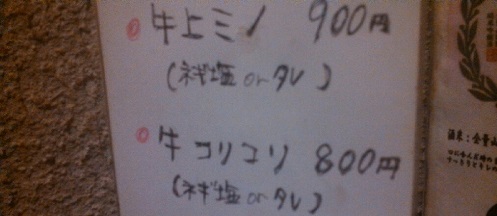 牛上ミノ 900円
(ネギ塩 or タレ)
牛コリコリ 800円
(ネギ塩 or タレ)